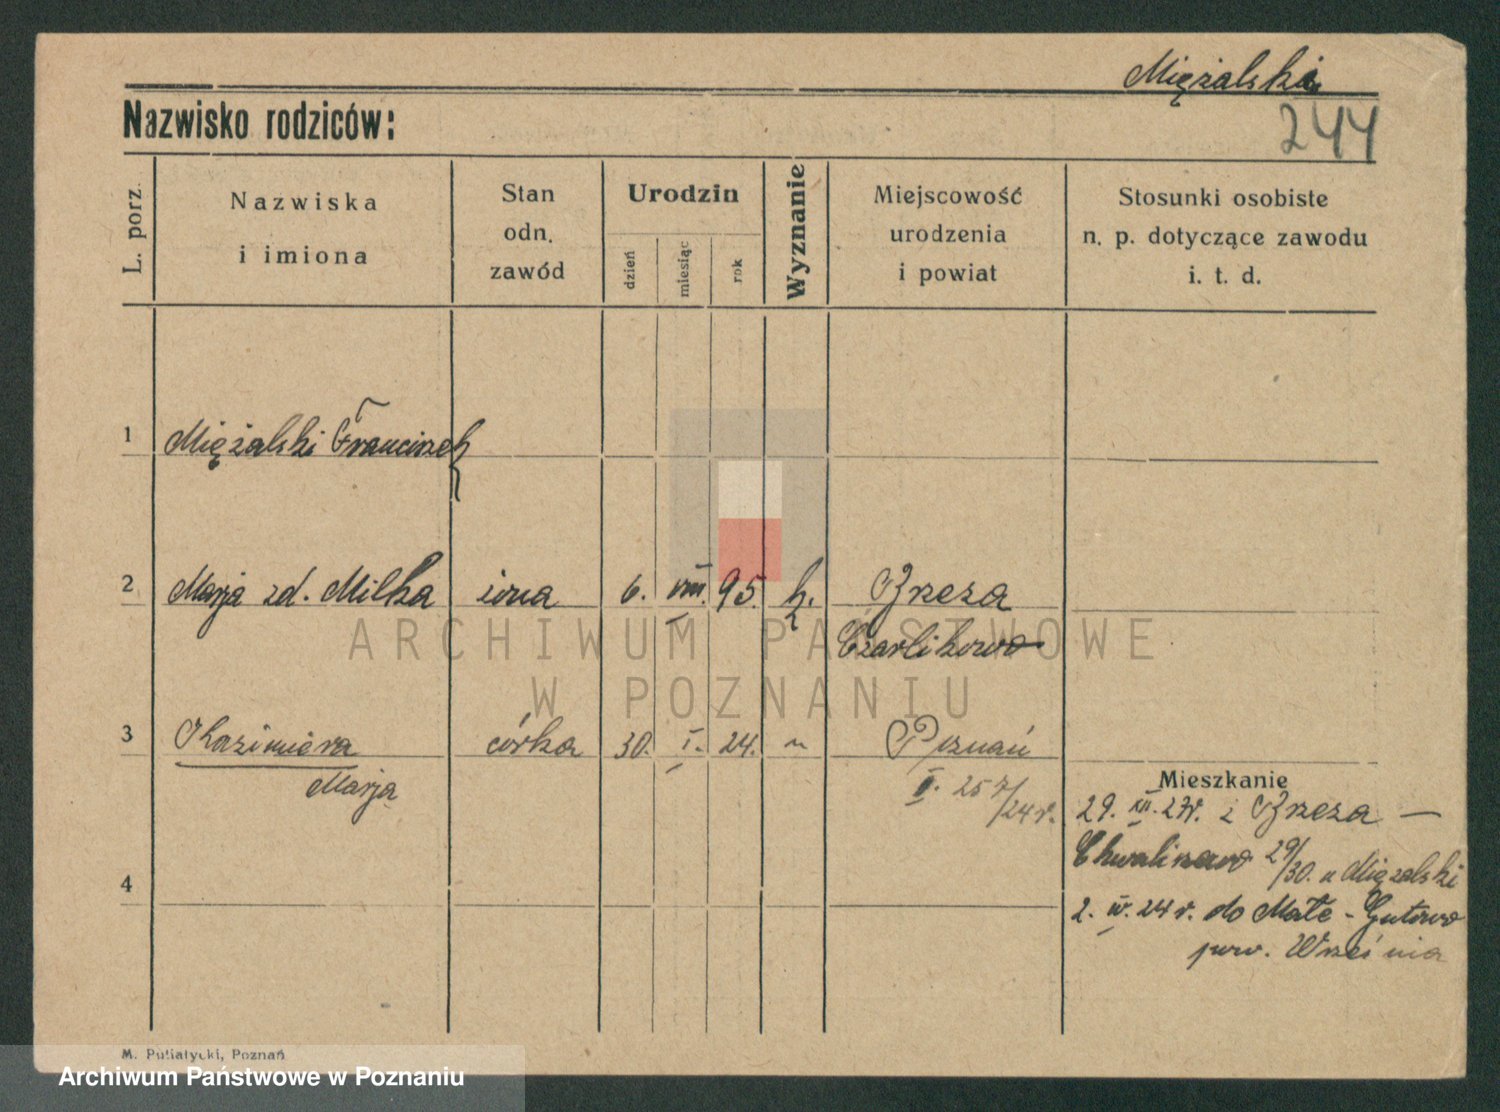 Mięzalski
Nazwisko rodziców:
244
L. porz.
Nazwiska
i imiona
Stan
odn.
zawód
Urodzin
dzień
miesiąc
rok
Wyznanie
Miejscowość
urodzenia
i powiat
Stosunki osobiste
n. p. dotyczące zawodu
i. t. d.
1 Mięzalski Franciszek
2 Marja zd. Milka żona 6. VIII. 95. k. Brzeza
ARCHIWUM PAŃSTWOWE
W POZNANIU
3 Kazimiera córka 30. I. 24. " Poznań
Marja
II. 257/24 r.
Mieszkanie
29. XII. 23r. z Brzeza —
29/30. u Mięzalski
2. IV. 24 r. do Małe-Gutowo
pow. Września
4
M. Putiatycki, Poznań
Archiwum Państwowe w Poznaniu